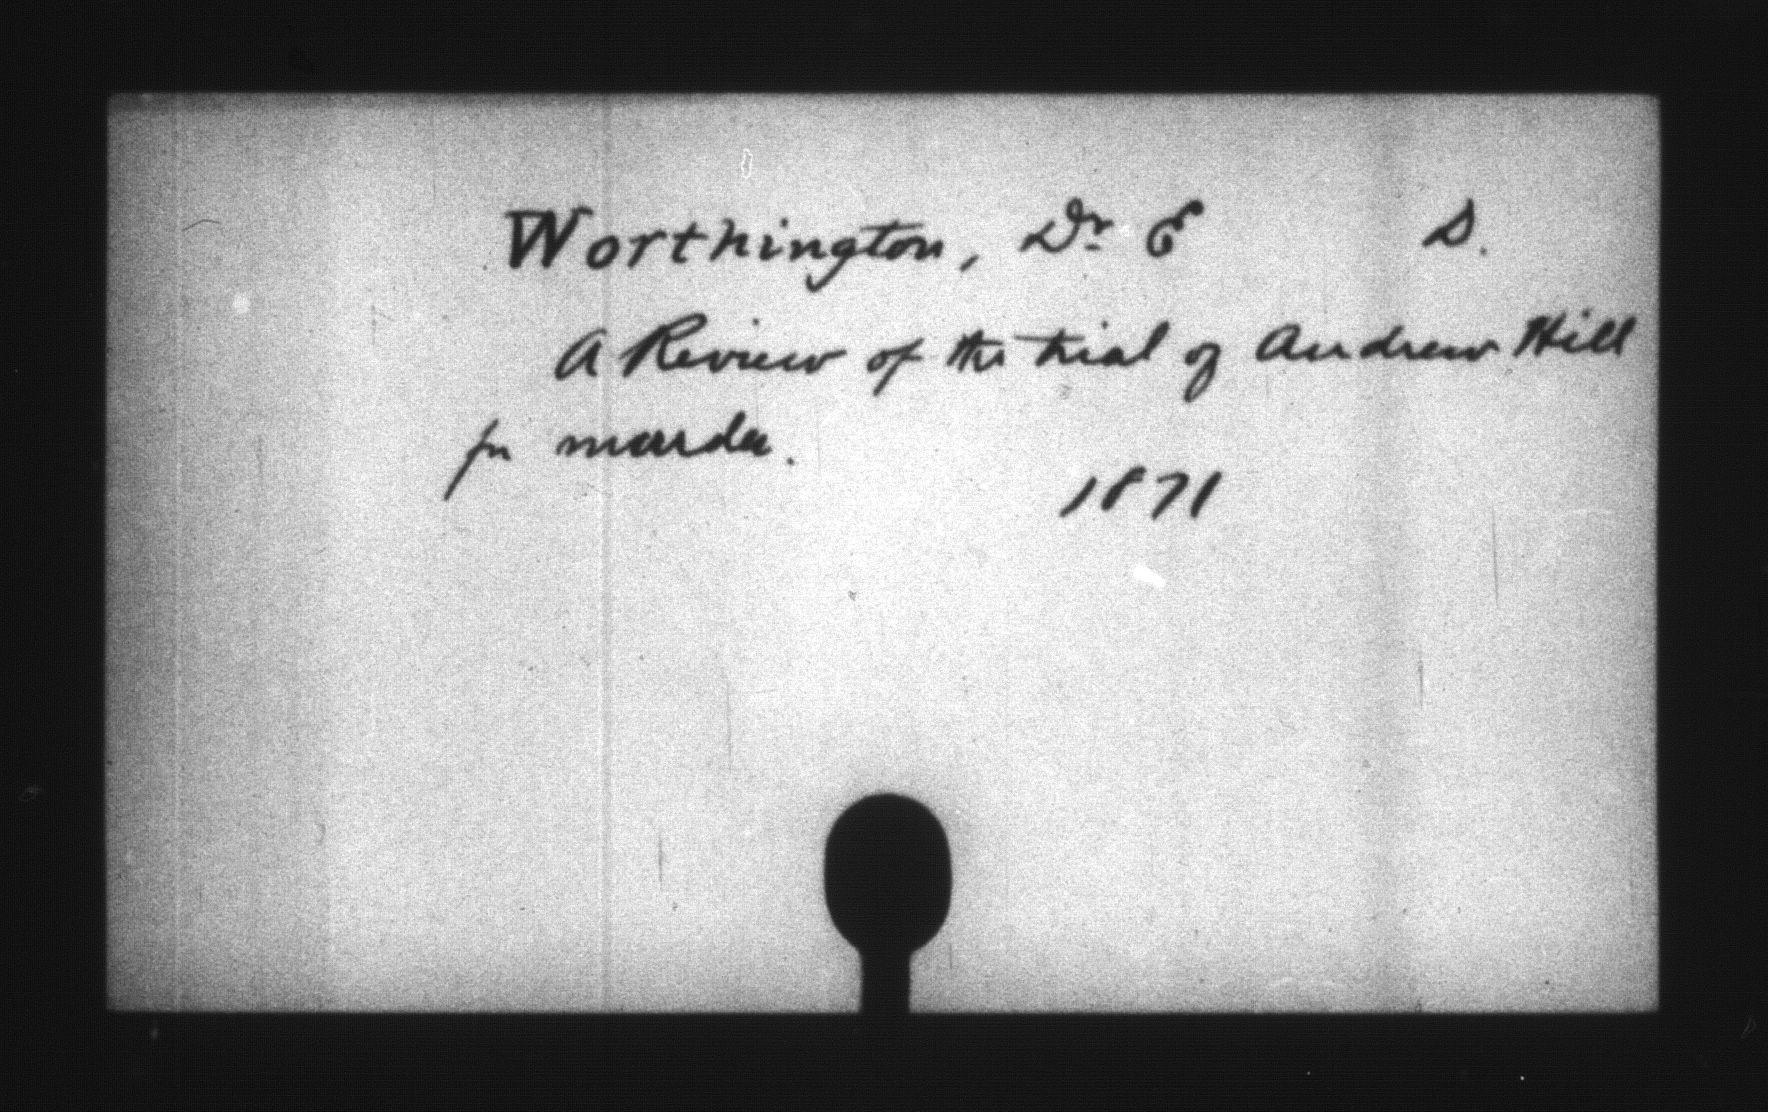 Worthington, Dr. E D.
A Review of the trial of Andrew Hill
for murder.
1871